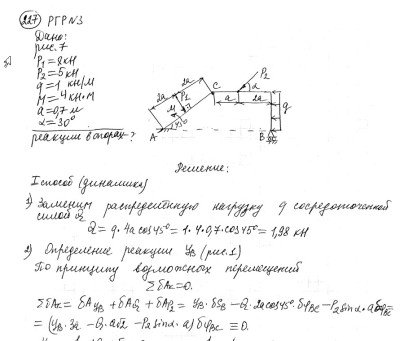 227 РГР N3
Дано:
рис. 7
P₁ = 2 кН
P₂ = 5 кН
q = 1 кН/м
M = 4 кН·м
a = 0,7 м
α = 30°
реакции в опорах - ?
2a
2a
P₁
M
45°
A
C
a
2a
P₂
α
q
B
Решение:
I способ (динамика)
1) Заменим распределенную нагрузку q сосредоточенной
силой Q
Q = q·4a cos45° = 1·4·0,7·cos45° = 1,98 кН
2) Определение реакции Y_B (рис. 1)
По принципу возможных перемещений
ΣδA_K = 0.
ΣδA_K = δA_YB + δA_Q + δA_P2 = Y_B·δS_B - Q·2a cos45°·δφ_BC - P₂ sinα·a δφ_BC =
= (Y_B·3a - Q·a√2 - P₂ sinα·a) δφ_BC = 0.